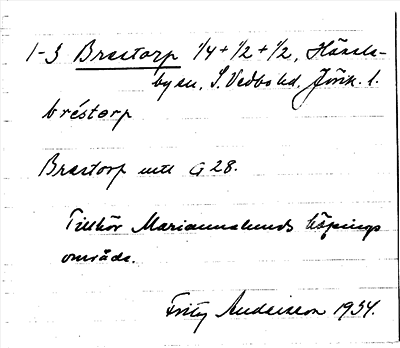 1-3 Brastorp 1/4 + 1/2 + 1/2, Hässle-
by sn, S. Vedbo hd. Jönk. l.
bréstorp
Brastorp mtl G 28.
Tillhör Mariannelunds köpings
område.
Fritz Andersson 1934.